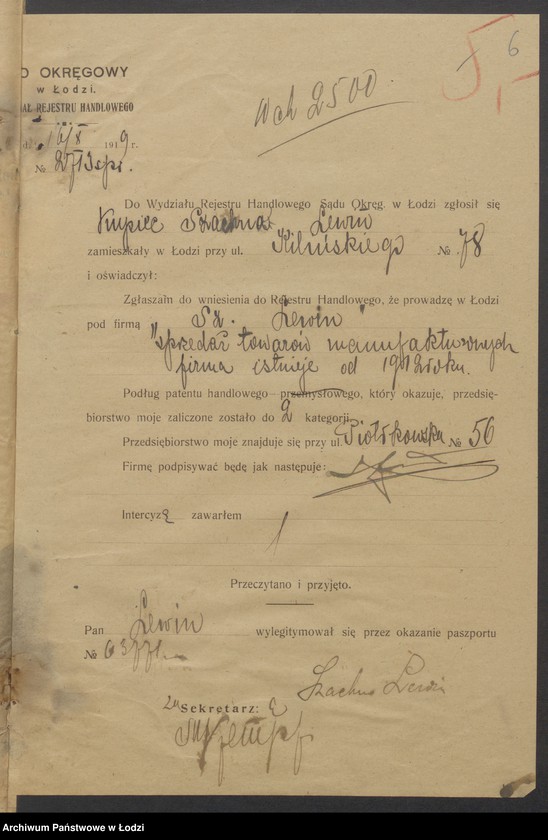 5,-
6
O OKRĘGOWY
w Łodzi.
AŁ REJESTRU HANDLOWEGO
16/X 1919 r.
№
Wch 2500
Do Wydziału Rejestru Handlowego Sądu Okręg. w Łodzi zgłosił się
Kupiec Szachna Lewin
zamieszkały w Łodzi przy ul. Kilińskiego № 78
i oświadczył:
Zgłaszam do wniesienia do Rejestru Handlowego, że prowadzę w Łodzi
pod firmą "Sz. Lewin"
sprzedaż towarów manufakturowych
firma istnieje od 1912 roku.
Podług patentu handlowego przemysłowego, który okazuje, przedsię-
biorstwo moje zaliczone zostało do 2 kategorji
Przedsiębiorstwo moje znajduje się przy ul. Piotrkowska № 56
Firmę podpisywać będę jak następuje:
Intercyzę zawarłem
Przeczytano i przyjęto.
Pan Lewin wylegitymował się przez okazanie paszportu
№
Szachna Lewin
za Sekretarz:
Archiwum Państwowe w Łodzi